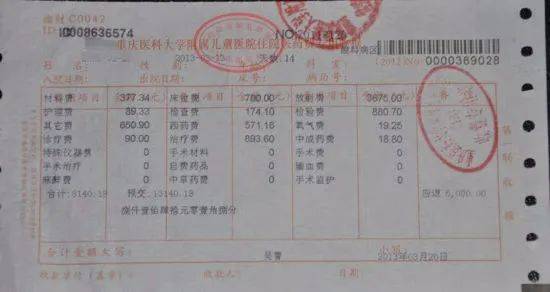 渝财 C0042
ID:0008636574 NO
重庆医科大学附属儿童医院住院医药费
2013-03- 天数:14 眼科病区 (2012)No 0000369028
姓名: 性别: 科室:
入院日期: 出院日期: 床号: 病历号:
材料费 377.34 床位费 780.00 放射费 3675.00
护理费 89.33 检查费 174.10 检验费 880.70
其它费 650.90 西药费 571.16 氧气费 19.25
诊疗费 90.00 治疗费 893.60 中成药费 18.80
特殊仪器费 0 手术材料 0 手术费 0
手术治疗 0 自费药品 0 输血费 0
麻醉费 0 中草药费 0 手术监护 0
合计:8140.18 预交:13140.18 应退 5,000.00
捌仟壹佰肆拾元零壹角捌分
合计金额大写: 小写:
吴 2013年03月26日
收款单位(盖章): 收款人: 日期:
第一联 收据